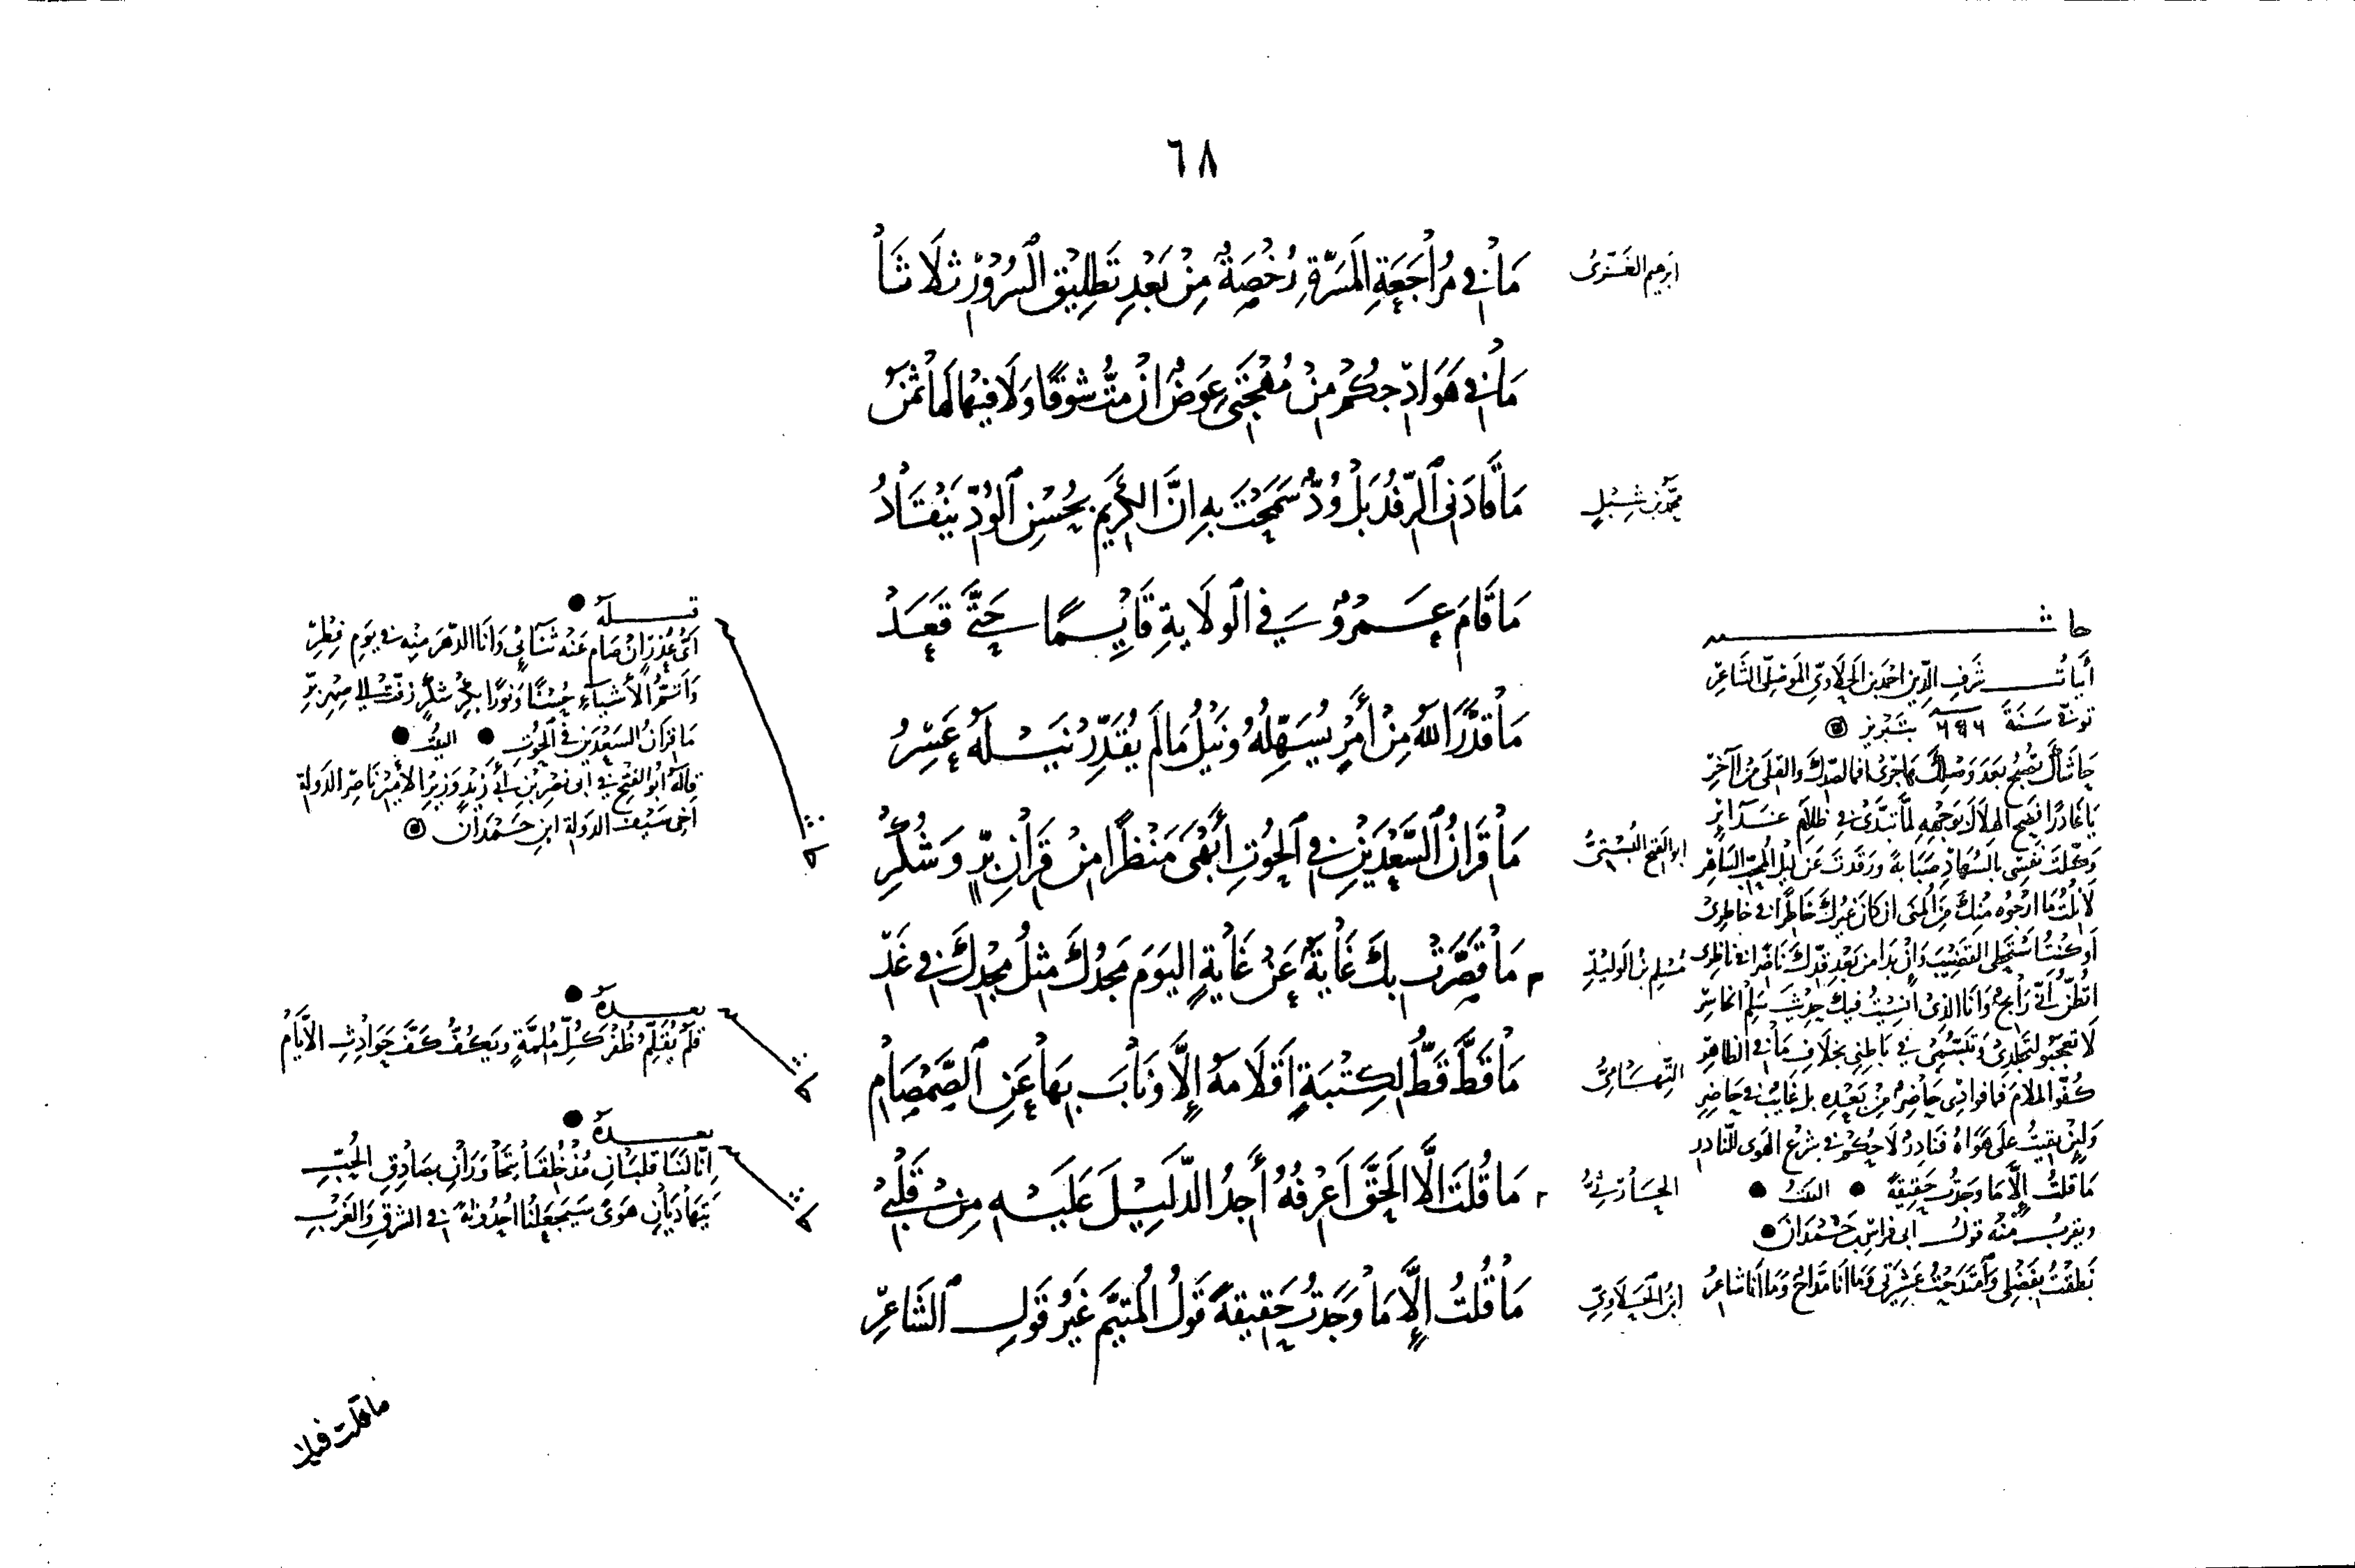 ٦٨
ابرهيم الغزى
مَا فِي مُرَاجَعَةِ المَسَرَّةِ رُخْصَةٌ مِنْ بَعْدِ تَطْلِيْقِ السُرُوْرِ ثَلَاثَا
مَا فِي هَوَادِجِكُمْ مِنْ مُهْجَتِي عِوَضٌ انْ مِتُّ شَوْقًا وَلَا فِيهَا لَهَا ثَمَنُ
محمد بن شبل
مَا قَادَنِي الرِّفْدُ بَلْ وُدٌّ سَمَحْتَ بِهِ انَّ الكَرِيْمَ بِحُسْنِ الوُدِّ يَنْقَادُ
مَا قَامَ عَمْرٌو فِي الوِلَايَةِ قَايِمًا حَتَّى قَعَدْ
مَا قَدَّرَ اللهُ مِنْ أَمْرٍ يُسَهِّلُهُ وَنَيْلُ مَا لَمْ يُقَدِّرْ نَيْلَهُ عَسِرُ
ابو الفتح البستى
مَا قِرَانُ السَّعْدَيْنِ فِي الحُوتِ أَبْهَى مَنْظَرًا مِنْ قِرَانِ بِرٍّ وَشُكْرِ
مسلم بن الوليد
مَا قَصَّرَتْ بِكَ غَايَةٌ عَنْ غَايَةٍ اليَوْمَ مَجْدُكَ مِثْلُ مَجْدِكَ فِي غَدِ
التهامى
مَا قَطَّ قَطُّ لِكِتْبَةٍ أَقْلَامَهُ إِلَّا وَنَابَ بِهَا عَنِ الصَّمْصَامِ
الحارثى
مَا قُلْتَ الَّا الحَقَّ أَعْرِفُهُ أَجِدُ الدَّلِيْلَ عَلَيْهِ مِنْ قَلْبِي
ابن الحلاوى
مَا قُلْتُ إِلَّا مَا وَجَدْتُ حَقِيْقَةً قَوْلُ المُتَيَّمِ غَيْرُ قَوْلِ الشَّاعِرِ
حاشية
أبيات شرف الدين احمد بن الحلاوي الموصلي الشاعر
توفى سنة ٦٥٦ بتبريز
حاشاك تصبح بعد وصلك هاجرى
يا غادرا فضح الهلال بوجهه لما تبدى في ظلام غدائر
وكحلت بالسهاد صبابة ورقدت عن ليل المحب الساهر
لا نلت ما ارجوه منك من المنى ان كان غيرك خاطرا في خاطرى
اتظن أنى رابح وانا الذى انسيت فيك حديث سلم الخاسر
لا تعجبوا لتجلدى وتبسمى في باطنى بخلاف ما في الظاهر
كفوا الملام فما فوادى حاضر من بعده بل غايب في حاضر
ولين بقيت على هواه فنادر لا حكم في شرع الهوى للنادر
ما قلت إلا ما وجدت حقيقة البيت
ويقرب منه قول ابى فراس بن حمدان
نطقت بفضلى وامتدحت عشيرتى وما انا مداح وما انا شاعر
قبله
أي عذر ان صام عنه ثنائي وانا الدهر منه في يوم فطر
وأتم الأشياء حسنا ونورا بكر شكر زفت الى صهر بر
ما قران السعدين في الحوت البيت
قاله ابو الفتح في ابى نصر بن أبي زيد وزير الأمير ناصر الدولة
اخى سيف الدولة ابن حمدان
بعده
قلم يقلم ظفر كل ملمة ويكف كف حوادث الايام
بعده
انا لنا قلبان مذ خلقا يتحاوران بصادق الحب
يتهاديان هوى سيجعلنا احدوثة في الشرق والغرب
ما قلت فيلا